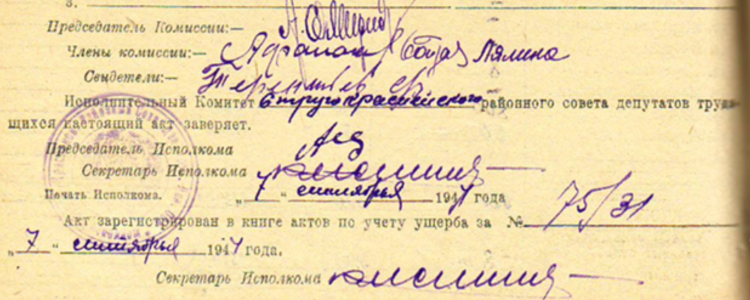 3.
Председатель Комиссии:—
Члены комиссии:— Лялина
Свидетели:— Терентьев
Исполнительный Комитет Стругокраснейского районного совета депутатов трудя-
щихся настоящий акт заверяет.
Председатель Исполкома
Секретарь Исполкома
Печать Исполкома. „7“ сентября 1944 года
Акт зарегистрирован в книге актов по учету ущерба за № 75/31
„7“ сентября 1944 года.
Секретарь Исполкома